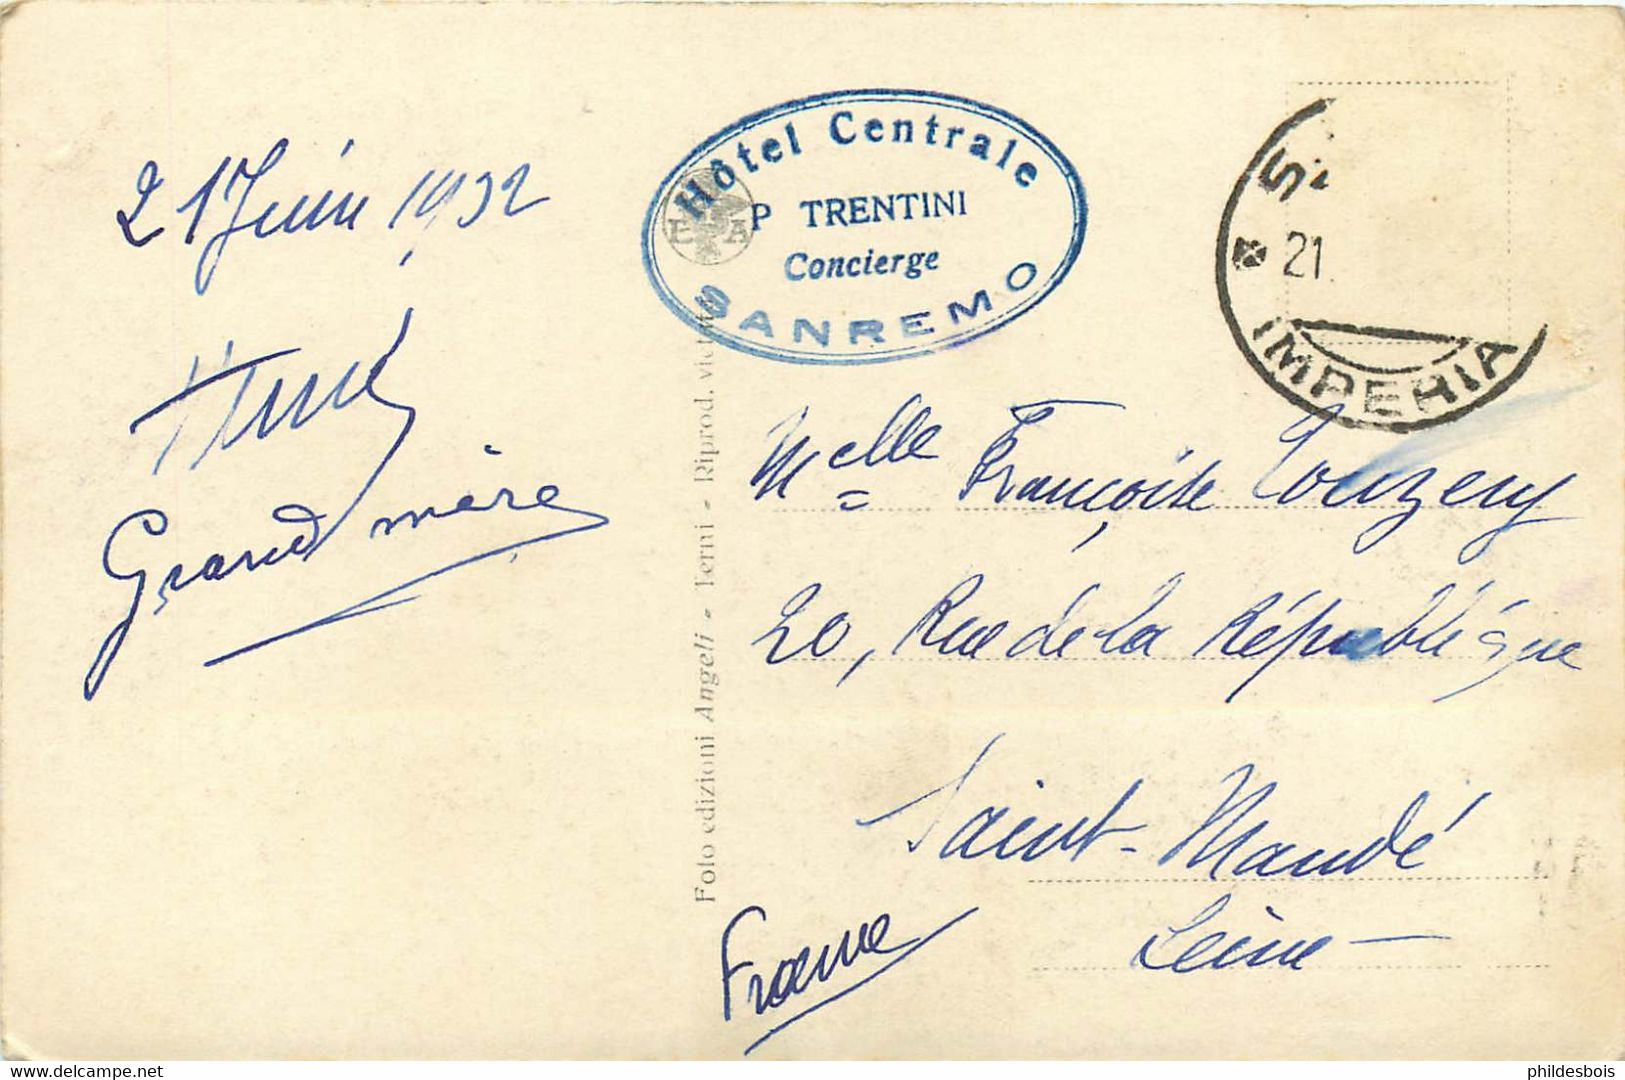 21 Juin 1932
Grand mère
Hôtel Centrale
P TRENTINI
Concierge
SANREMO
E A
Foto edizioni Angeli - Terni - Riprod. vietata
21.
IMPERIA
Melle Françoise Touzery
20, Rue de la République
Saint-Mandé
Seine
France
delcampe.net
phildesbois